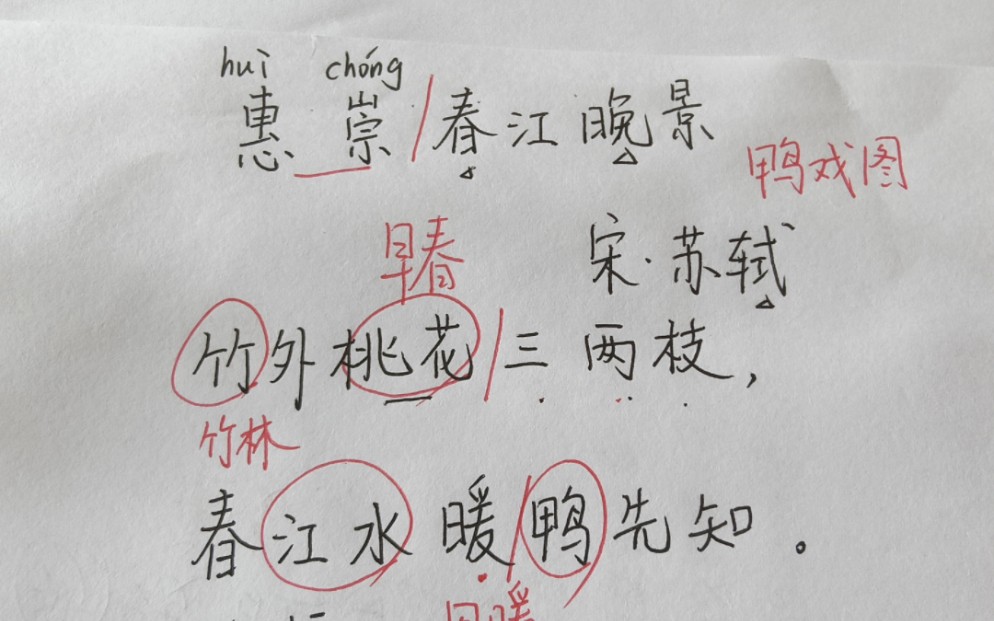 huì chóng
惠崇/春江晚景
鸭戏图
早春
宋·苏轼
竹外桃花/三两枝,
竹林
春江水暖/鸭先知。